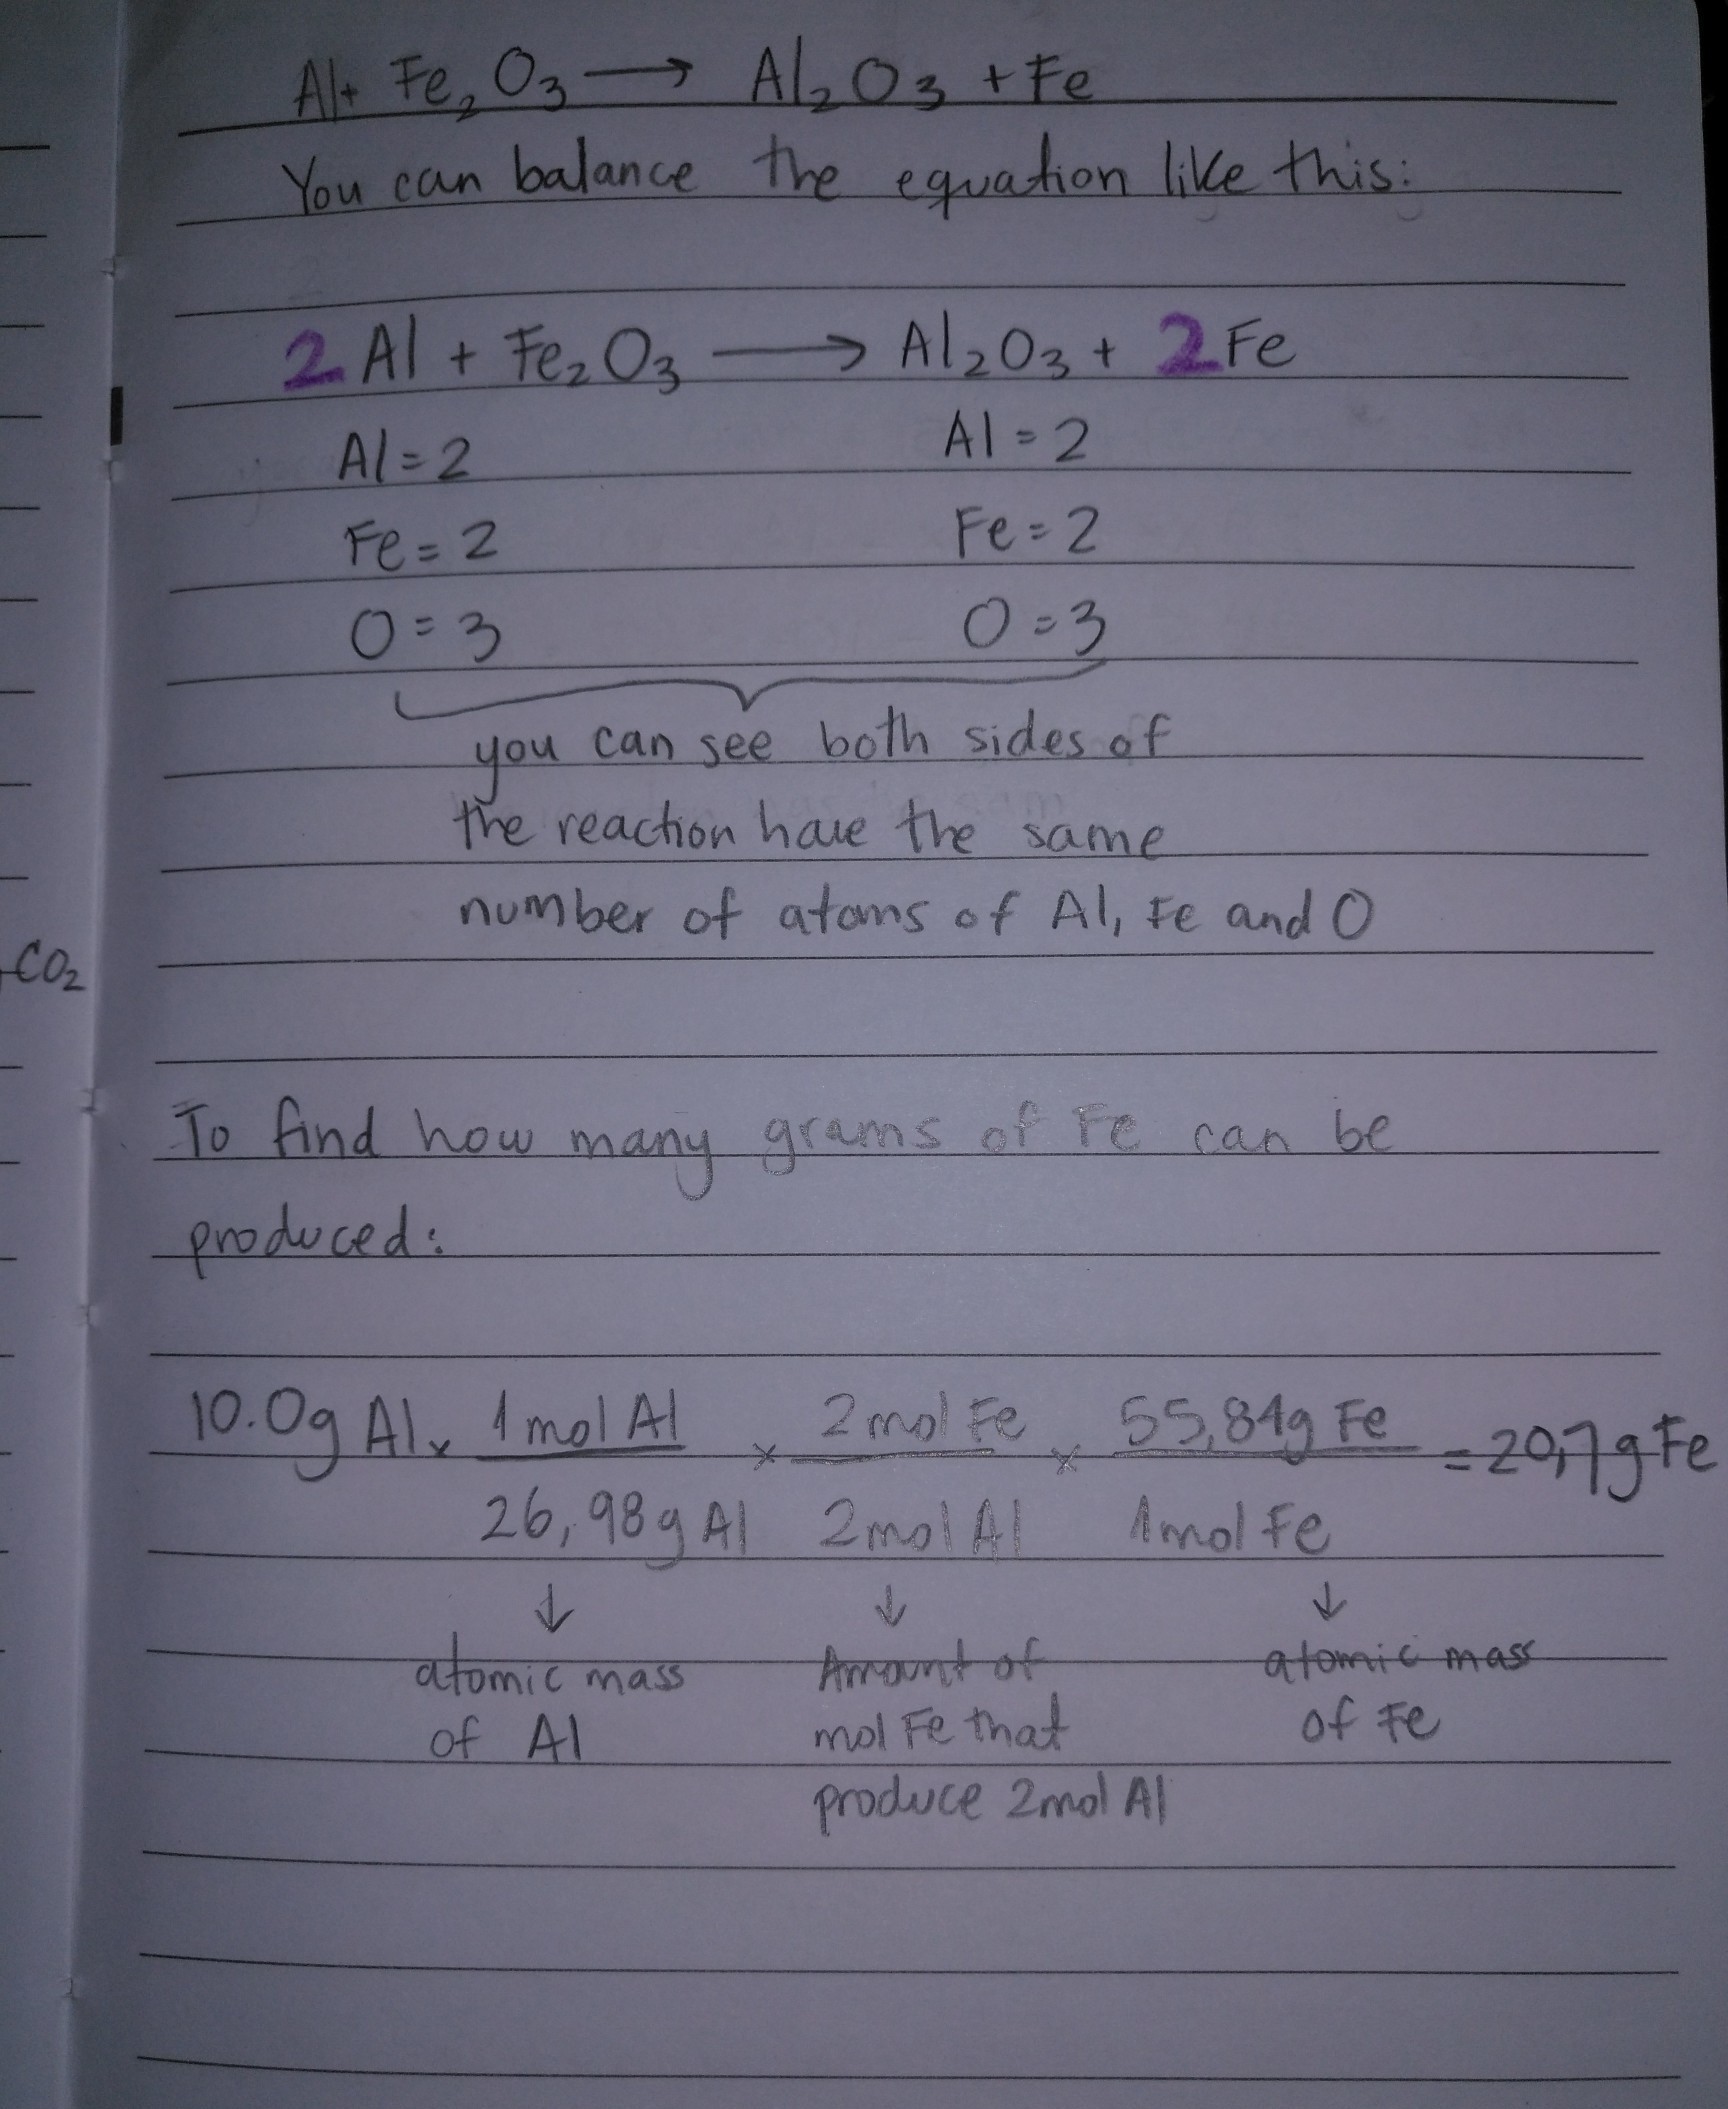 Al + Fe₂O₃ ⟶ Al₂O₃ + Fe
You can balance the equation like this:
2 Al + Fe₂O₃ ⟶ Al₂O₃ + 2 Fe
Al = 2 Al = 2
Fe = 2 Fe = 2
O = 3 O = 3
you can see both sides of
the reaction have the same
number of atoms of Al, Fe and O
CO₂
To find how many grams of Fe can be
produced:
10.0g Al x 1 mol Al x 2 mol Fe x 55,84g Fe = 20,7g Fe
26,98g Al 2 mol Al 1 mol Fe
↓ ↓ ↓
atomic mass Amount of atomic mass
of Al mol Fe that of Fe
produce 2mol Al